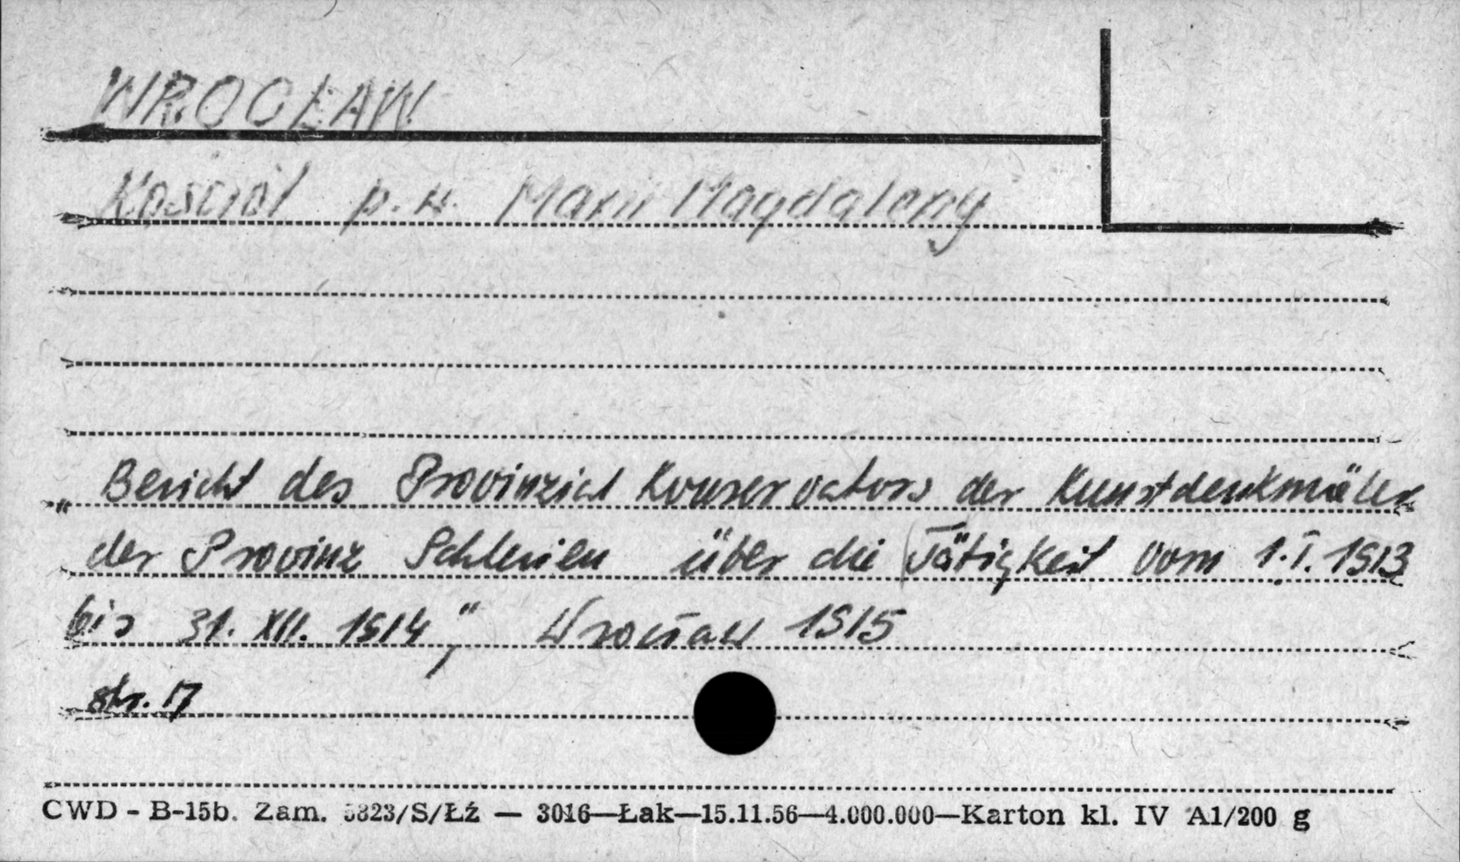 WROCŁAW
Kościół p.w. Marii Magdaleny
„Bericht des Provinzial Konservators der Kunstdenkmäler
der Provinz Schlesien über die Tätigkeit vom 1.I.1913
bis 31.XII.1914", Wrocław 1915
str. 17
CWD - B-15b. Zam. 5823/S/Łź — 3016—Łak—15.11.56—4.000.000—Karton kl. IV A1/200 g